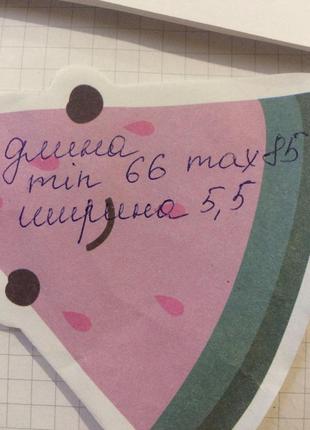 длина
min 66 max 85
ширина 5,5